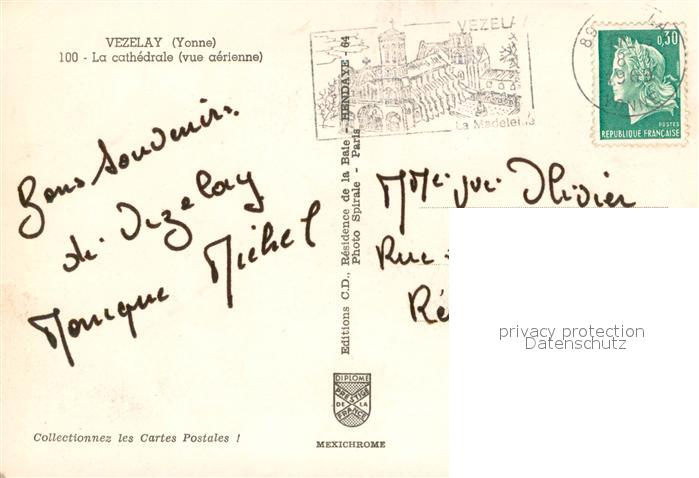 VEZELAY (Yonne)
100 - La cathédrale (vue aérienne)
VEZELAY
La Madeleine
89
0,30
POSTES
REPUBLIQUE FRANÇAISE
Bons Souvenirs
de Vezelay
Monique Michel
Editions C.D., Résidence de la Baie - HENDAYE - 64
Photo Spirale - Paris
Olivier
Rue
Ré
privacy protection
Datenschutz
DIPLOME
PRESTIGE
DE LA
FRANCE
Collectionnez les Cartes Postales !
MEXICHROME